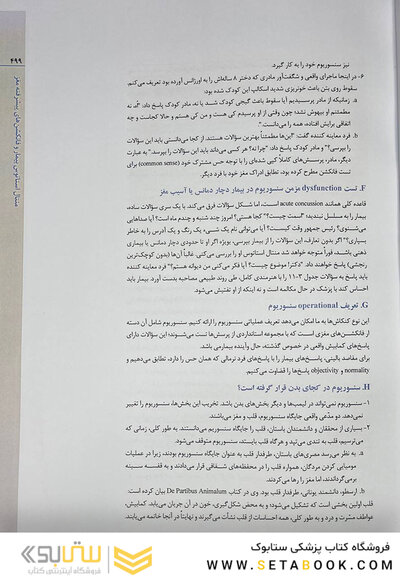 ۴۹۹
منتال استاتوس بیمار و فانکشن‌های پیشرفته مغز
نیز سنسوریوم خود را به کار گیرد.
۶- در اینجا ماجرای واقعی و شگفت‌آور مادری که دختر ۸ ساله‌اش را به اورژانس آورده بود تعریف می‌کنم.
سقوط روی بتن باعث خونریزی شدید اسکالپ این کودک شده بود:
a. زمانیکه از مادر پرسیدیم آیا سقوط باعث گیجی کودک شد یا نه، مادر کودک پاسخ داد: "نه، نه
مطمئنم او بیهوش نشد؛ چون وقتی از او پرسیدم کی هست و من کی هستم و حالا کجاست و چه
اتفاقی برایش افتاده، همه را می‌دانست."
b. فرد معاینه کننده گفت: "این‌ها مطمئناً بهترین سؤالات هستند. از کجا می‌دانستی باید این سؤالات
را بپرسی؟" و مادر کودک پاسخ داد: "چرا نه؟ هر کسی می‌داند باید این سؤالات را بپرسد." به عبارت
دیگر، مادر، پرسش‌های کاملاً کپی شده‌ای را با توجه حس مشترک خود (common sense) برای
تست فانکشن مطرح کرده بود، تطابق ادراک مغز خود با فرد دیگر.
F. تست dysfunction مزمن سنسوریوم در بیمار دچار دمانس یا آسیب مغز
قاعده کلی همانند acute concussion است، اما شکل سؤالات فرق می‌کند. با یک سری سؤالات ساده،
بیمار را به مسلسل نبندید "اسمت چیست؟" "کجا هستی؟ امروز چند شنبه و چندم ماه است؟ آیا صداهایی
می‌شنوی؟ رئیس جمهور وقت کیست؟ آیا می‌توانی نام یک شیء، یک رنگ و یک آدرس را به خاطر
بسپاری؟" اگر بدون تعارف، این سؤالات را از بیمار بپرسی، بویژه اگر او تا حدودی دچار دمانس یا بیماری
ذهنی باشد، فوراً متوجه خواهد شد منتال استاتوس او را بررسی می‌کنی. غالباً آن‌ها (بدون کوچک‌ترین
رنجشی) پاسخ خواهند داد. "دکتر! موضوع چیست؟ آیا فکر می‌کنی من دیوانه هستم؟" فرد معاینه کننده
باید پاسخ به سؤالات جدول ۳-۱۱ را با هنرمندی کامل، طی روند طبیعی مصاحبه بدست آورد. بیمار باید
احساس کند با پزشک در حال مکالمه است و نه اینکه از او تفتیش می‌شود.
G. تعریف operational سنسوریوم
این نوع کنکاش‌ها به ما امکان می‌دهد تعریف عملیاتی سنسوریوم را ارائه کنیم. سنسوریوم شامل آن دسته
از فانکشن‌های مغزی است که با مجموعه استانداردی از پرسش‌ها تست می‌شوند؛ این سؤالات دارای
پاسخ‌های کمابیش واقعی در خصوص گذشته، حال و آینده بیمار می‌باشد.
برای مقاصد بالینی، پاسخ‌های بیمار را با پاسخ‌های فرد نرمالی که همان حس را دارد، تطابق می‌دهیم و
normality و objectivity پاسخ‌ها را قضاوت می‌کنیم.
H. سنسوریوم در کجای بدن قرار گرفته است؟
۱- سنسوریوم نمی‌تواند در لیمب‌ها و دیگر بخش‌های بدن باشد. تخریب این بخش‌ها، سنسوریوم را تغییر
نمی‌دهد. دو مدّعی واقعی جایگاه سنسوریوم، قلب و مغز می‌باشند.
۲- بسیاری از محققان و دانشمندان باستان، قلب را جایگاه سنسوریوم می‌دانستند. به طور کلی، زمانی که
می‌ترسیم، قلب به تندی می‌تپد و هرگاه قلب بایستد، سنسوریوم متوقف می‌شود.
a. به نظر می‌رسد مصری‌های باستان، طرفدار قلب به عنوان جایگاه سنسوریوم بودند، زیرا در عملیات
مومیایی کردن مردگان، همواره قلب را در محفظه‌های شفافی قرار می‌دادند و به قفسه سینه
برمی‌گرداندند، اما مغز را رها می‌کردند.
b. ارسطو، دانشمند یونانی، طرفدار قلب بود. وی در کتاب De Partibus Animalum بیان کرده است:
قلب اولین بخشی است که تشکیل می‌شود؛ و به محض شکل‌گیری، خون در آن جریان می‌یابد. کمابیش،
عواطف مسّرت و درد و به طور کلی، همه احساسات از قلب نشأت می‌گیرند و نهایتاً در آنجا خاتمه می‌یابند.
ستابوک
فروشگاه اینترنتی کتاب
فروشگاه کتاب پزشکی ستابوک
WWW.SETABOOK.COM